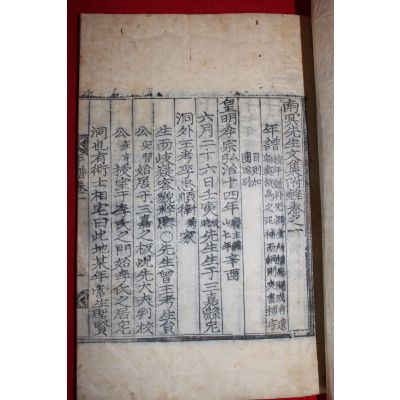 南冥先生文集附解卷之一
年譜
目則加
圈以別
皇明孝宗弘治十四年辛酉
六月二十六日壬寅辰時先生生于三嘉縣兎
洞外王考李忠順衛菊家
生而岐嶷容貌粹然○先生曾王考生員
公安習始居于三嘉之板峴先大夫判校
公彦亨授室于李氏之門始李氏之居兎
洞也有術士相宅曰此地某年當生聖賢